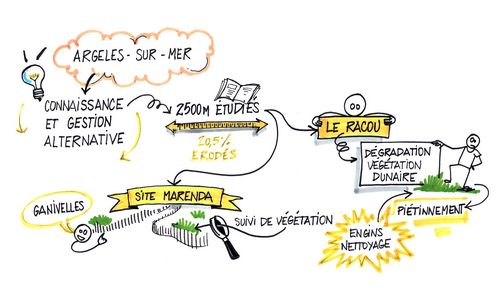 ARGELES-SUR-MER
CONNAISSANCE
ET GESTION
ALTERNATIVE
2500m ÉTUDIÉS
20,5%
ERODÉS
LE RACOU
DÉGRADATION
VÉGÉTATION
DUNAIRE
PIÉTINNEMENT
ENGINS
NETTOYAGE
SITE MARENDA
GANIVELLES
SUIVI DE VÉGÉTATION